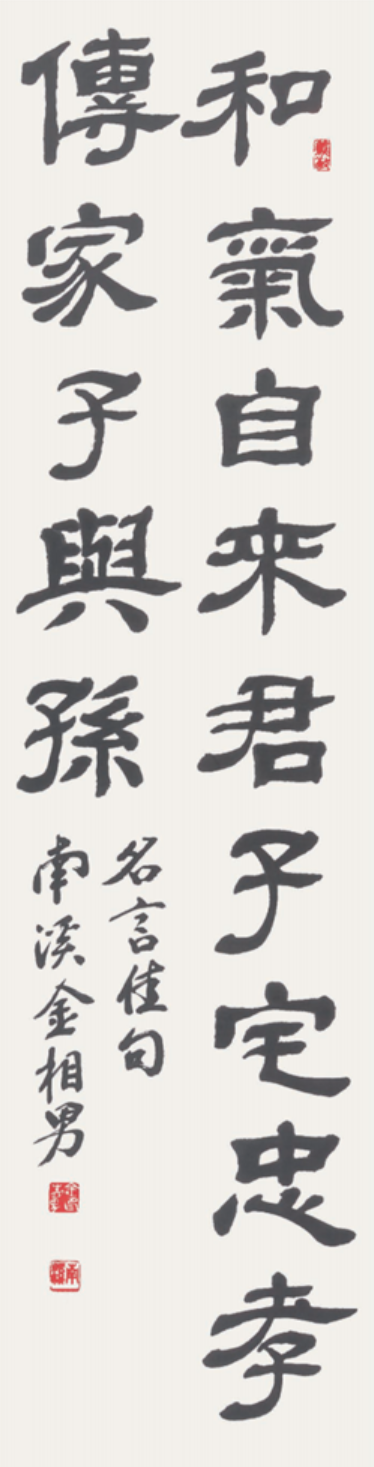 和氣自来君子宅忠孝
傳家子與孫
名言佳句
南溪金相男